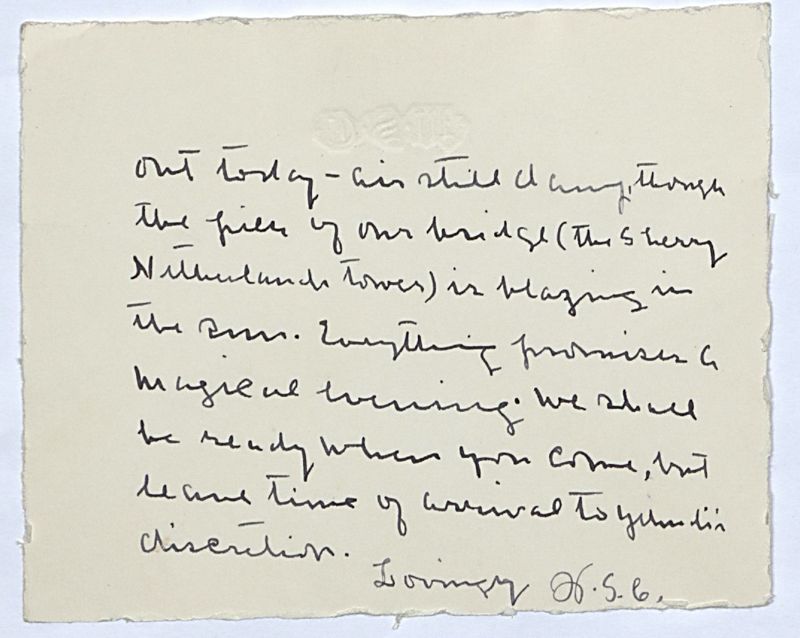 out today – air still damp, though
the pier of our bridge (the Sherry
Netherlands tower) is blazing in
the sun. Everything promises a
magical evening. We shall
be ready when you come, but
leave time of arrival to Yehudi's
discretion.
Lovingly H.S.C.